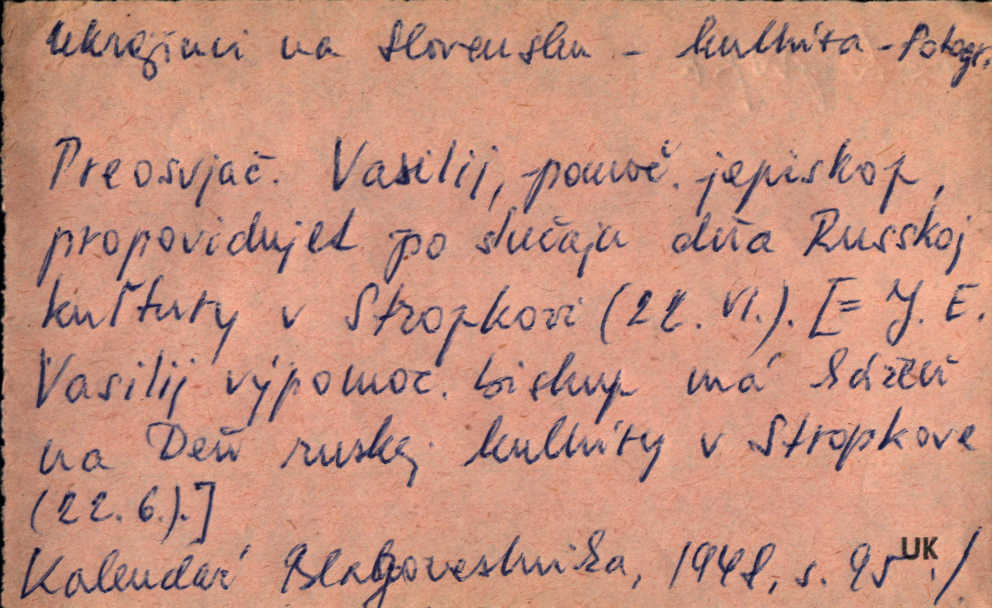 Ukrajinci na Slovensku - kultúra - Fotogr.
Preosvjač. Vasilij, pomoč. jepiskop,
propovidujet po slučaju dňa Russkoj
kuľtury v Stropkovi (22. VI.). [= J. E.
Vasilij výpomoc. biskup má kázeň
na Deň ruskej kultúry v Stropkove
(22. 6.).]
Kalendar Blagovestnika, 1948, s. 95./
UK